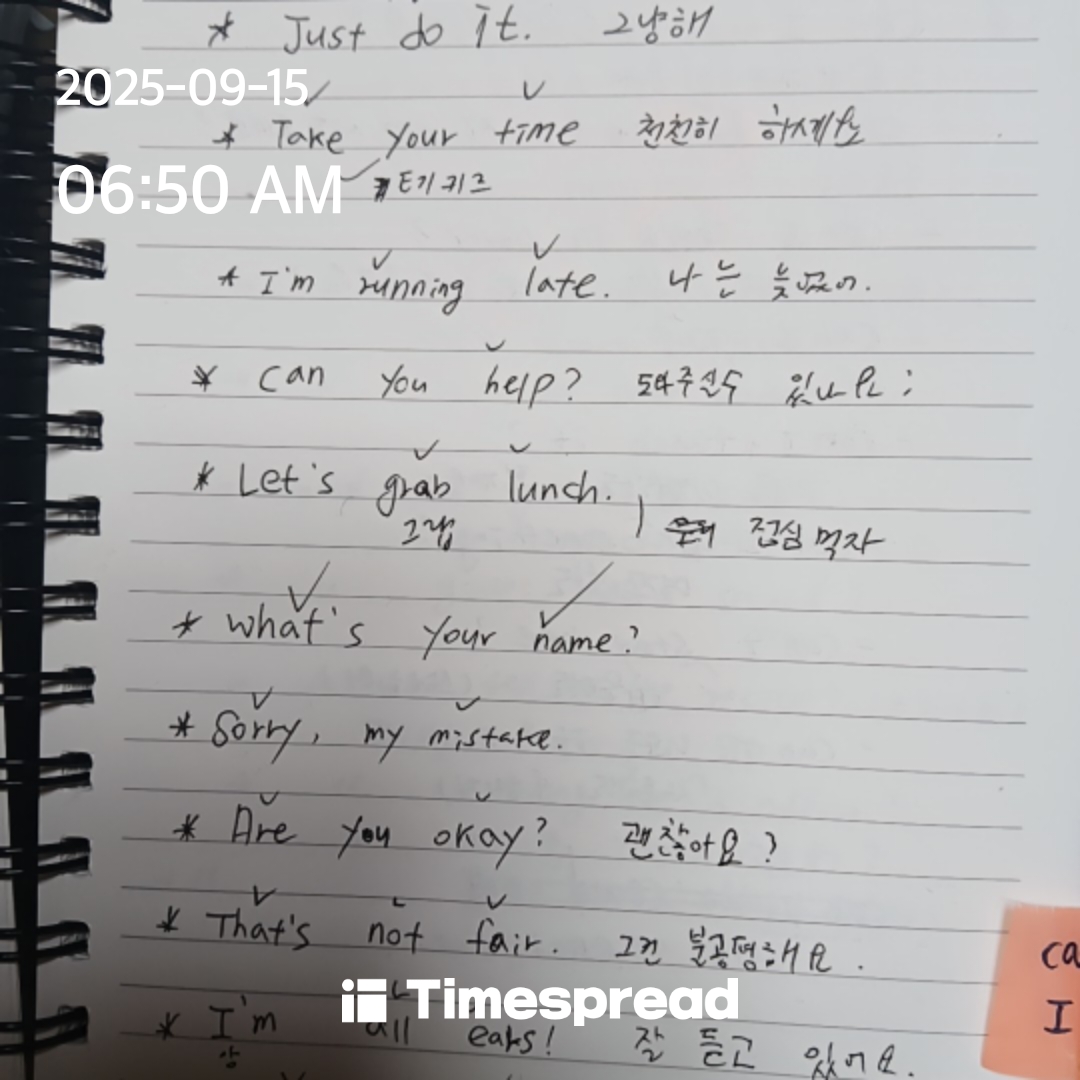 * Just do it. 그냥해
2025-09-15
* Take your time 천천히 하세요
06:50 AM
* I'm running late. 나는 늦었어.
* Can you help? 도와주실수 있나요?
* Let's grab lunch.
그랩 점심 먹자
* What's your name?
* Sorry, my mistake.
* Are you okay? 괜찮아요?
* That's not fair. 그건 불공평해요.
Timespread
* I'm all ears! 잘 듣고 있어요.
ca
I